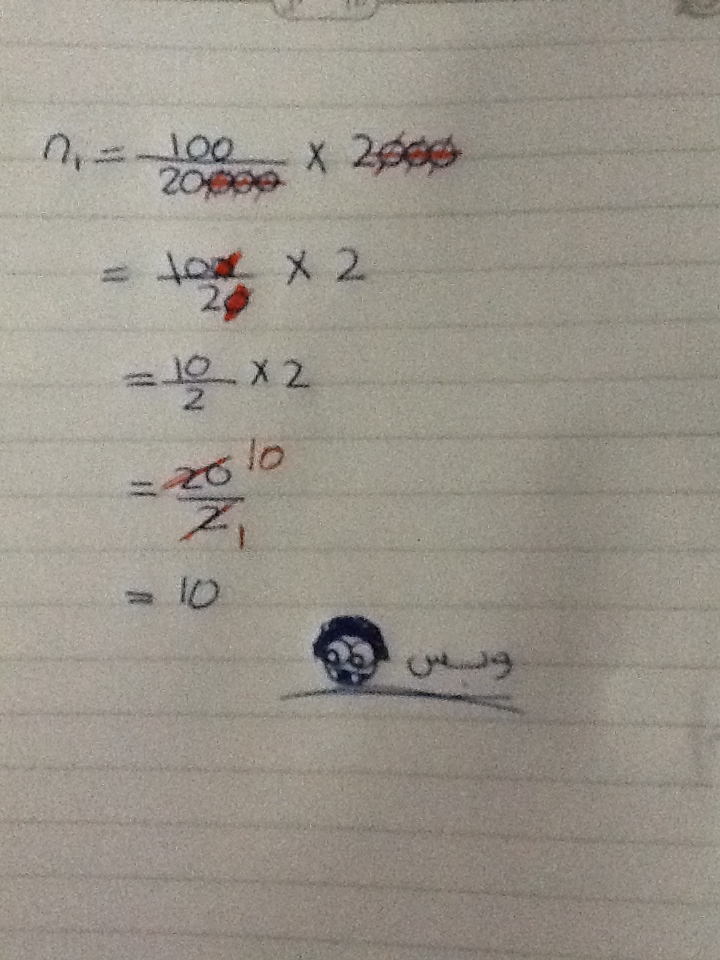 n₁ = 100/20000 × 2000
= 100/20 × 2
= 10/2 × 2
= 20/2 10 1
= 10
وبس